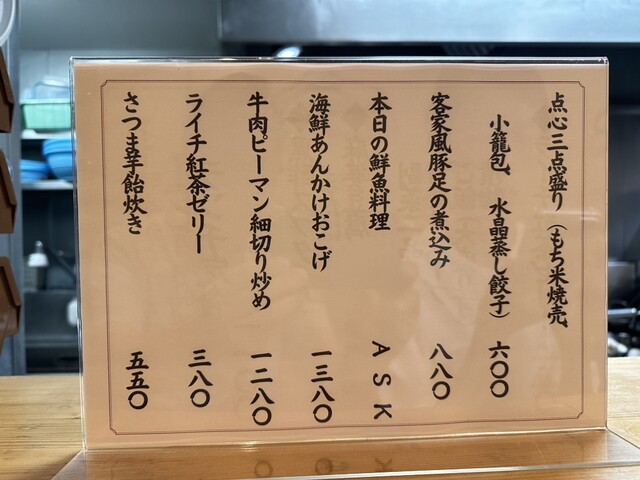 点心三点盛り(もち米焼売、
小籠包、水晶蒸し餃子) 六〇〇
客家風豚足の煮込み 八八〇
本日の鮮魚料理 ASK
海鮮あんかけおこげ 一三八〇
牛肉ピーマン細切り炒め 一二八〇
ライチ紅茶ゼリー 三八〇
さつま芋飴炊き 五五〇